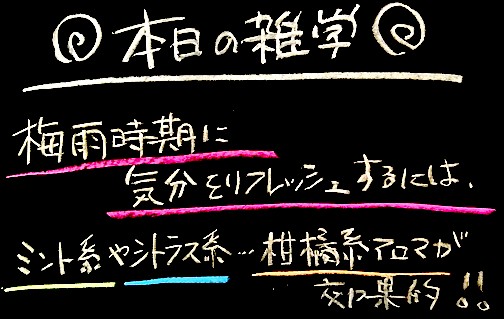 本日の雑学
梅雨時期に
気分をリフレッシュするには、
ミント系やシトラス系…柑橘系アロマが
効果的!!